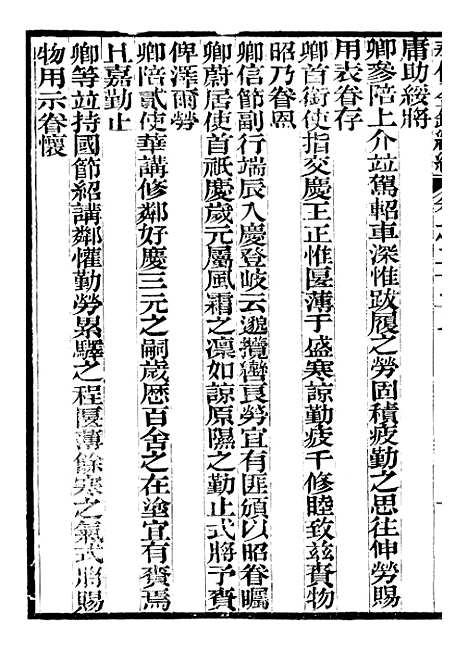 庸助綏將
卿參陪上介竝駕軺車深惟跋履之勞固積疲勤之思往伸勞賜
用表眷存
卿首銜使指交慶王正惟匽薄于盛寒諒勤疲于修睦致茲賚物
昭乃眷恩
卿信節副行端辰入慶登歧云邈攬轡良勞宜有匪頒以昭眷矚
卿蔚居使首祇慶歲元屬風霜之凜如諒原隰之勤止式將予賚
俾澤爾勞
卿陪貳使華講修鄰好慶三元之嗣歲歷百舍之在塗宜有賚焉
且嘉勤止
卿等竝持國節紹講鄰懽勤勞累驛之程匽薄餘寒之氣式將賜
物用示眷懷